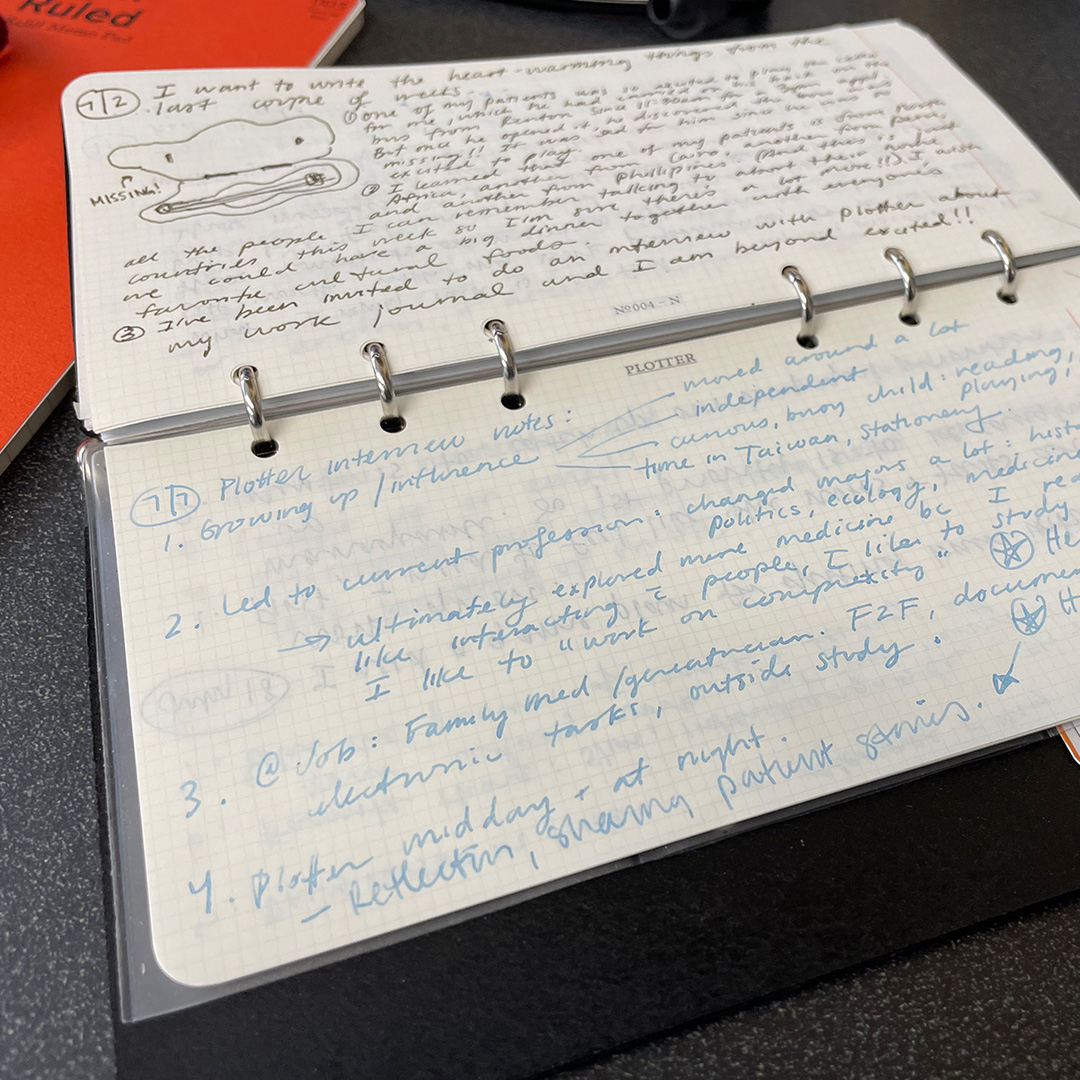 Ruled
Refill Memo Pad
7/2 I want to write the heart-warming things from the
last couple of weeks.
① one of my patients was so excited to play the
for me, which he had carried on his back on the
bus from Renton since 11:30am for a 3pm appt.
But once he opened it, he discovered the bow was
missing!! It was sad for him since he was so
excited to play.
MISSING!
② I learned that one of my patients is from North
Africa, another from Cairo, another from
and another from Phillipines. (And this is just
all the people I can remember talking to about their home
countries this week so I'm sure there's a lot more!!) I wish
we could have a big dinner together with everyone's
favorite cultural foods.
③ I've been invited to do an interview with Plotter about
my work journal and I am beyond excited!!
Nº004-N
PLOTTER
7/7 Plotter interview notes:
1. Growing up/influence
moved around a lot
independent
curious, busy child: reading,
playing,
time in Taiwan, stationery.
2. Led to current profession: changed majors a lot:
politics, ecology, medicine
→ ultimately explored more medicine bc I
like interacting c people, I like to study
I like to "work on complexity"
3. @ Job: Family med /geriatrician. F2F,
electronic tasks, outside study.
4. Plotter midday + at night.
– Reflection, sharing patient stories.